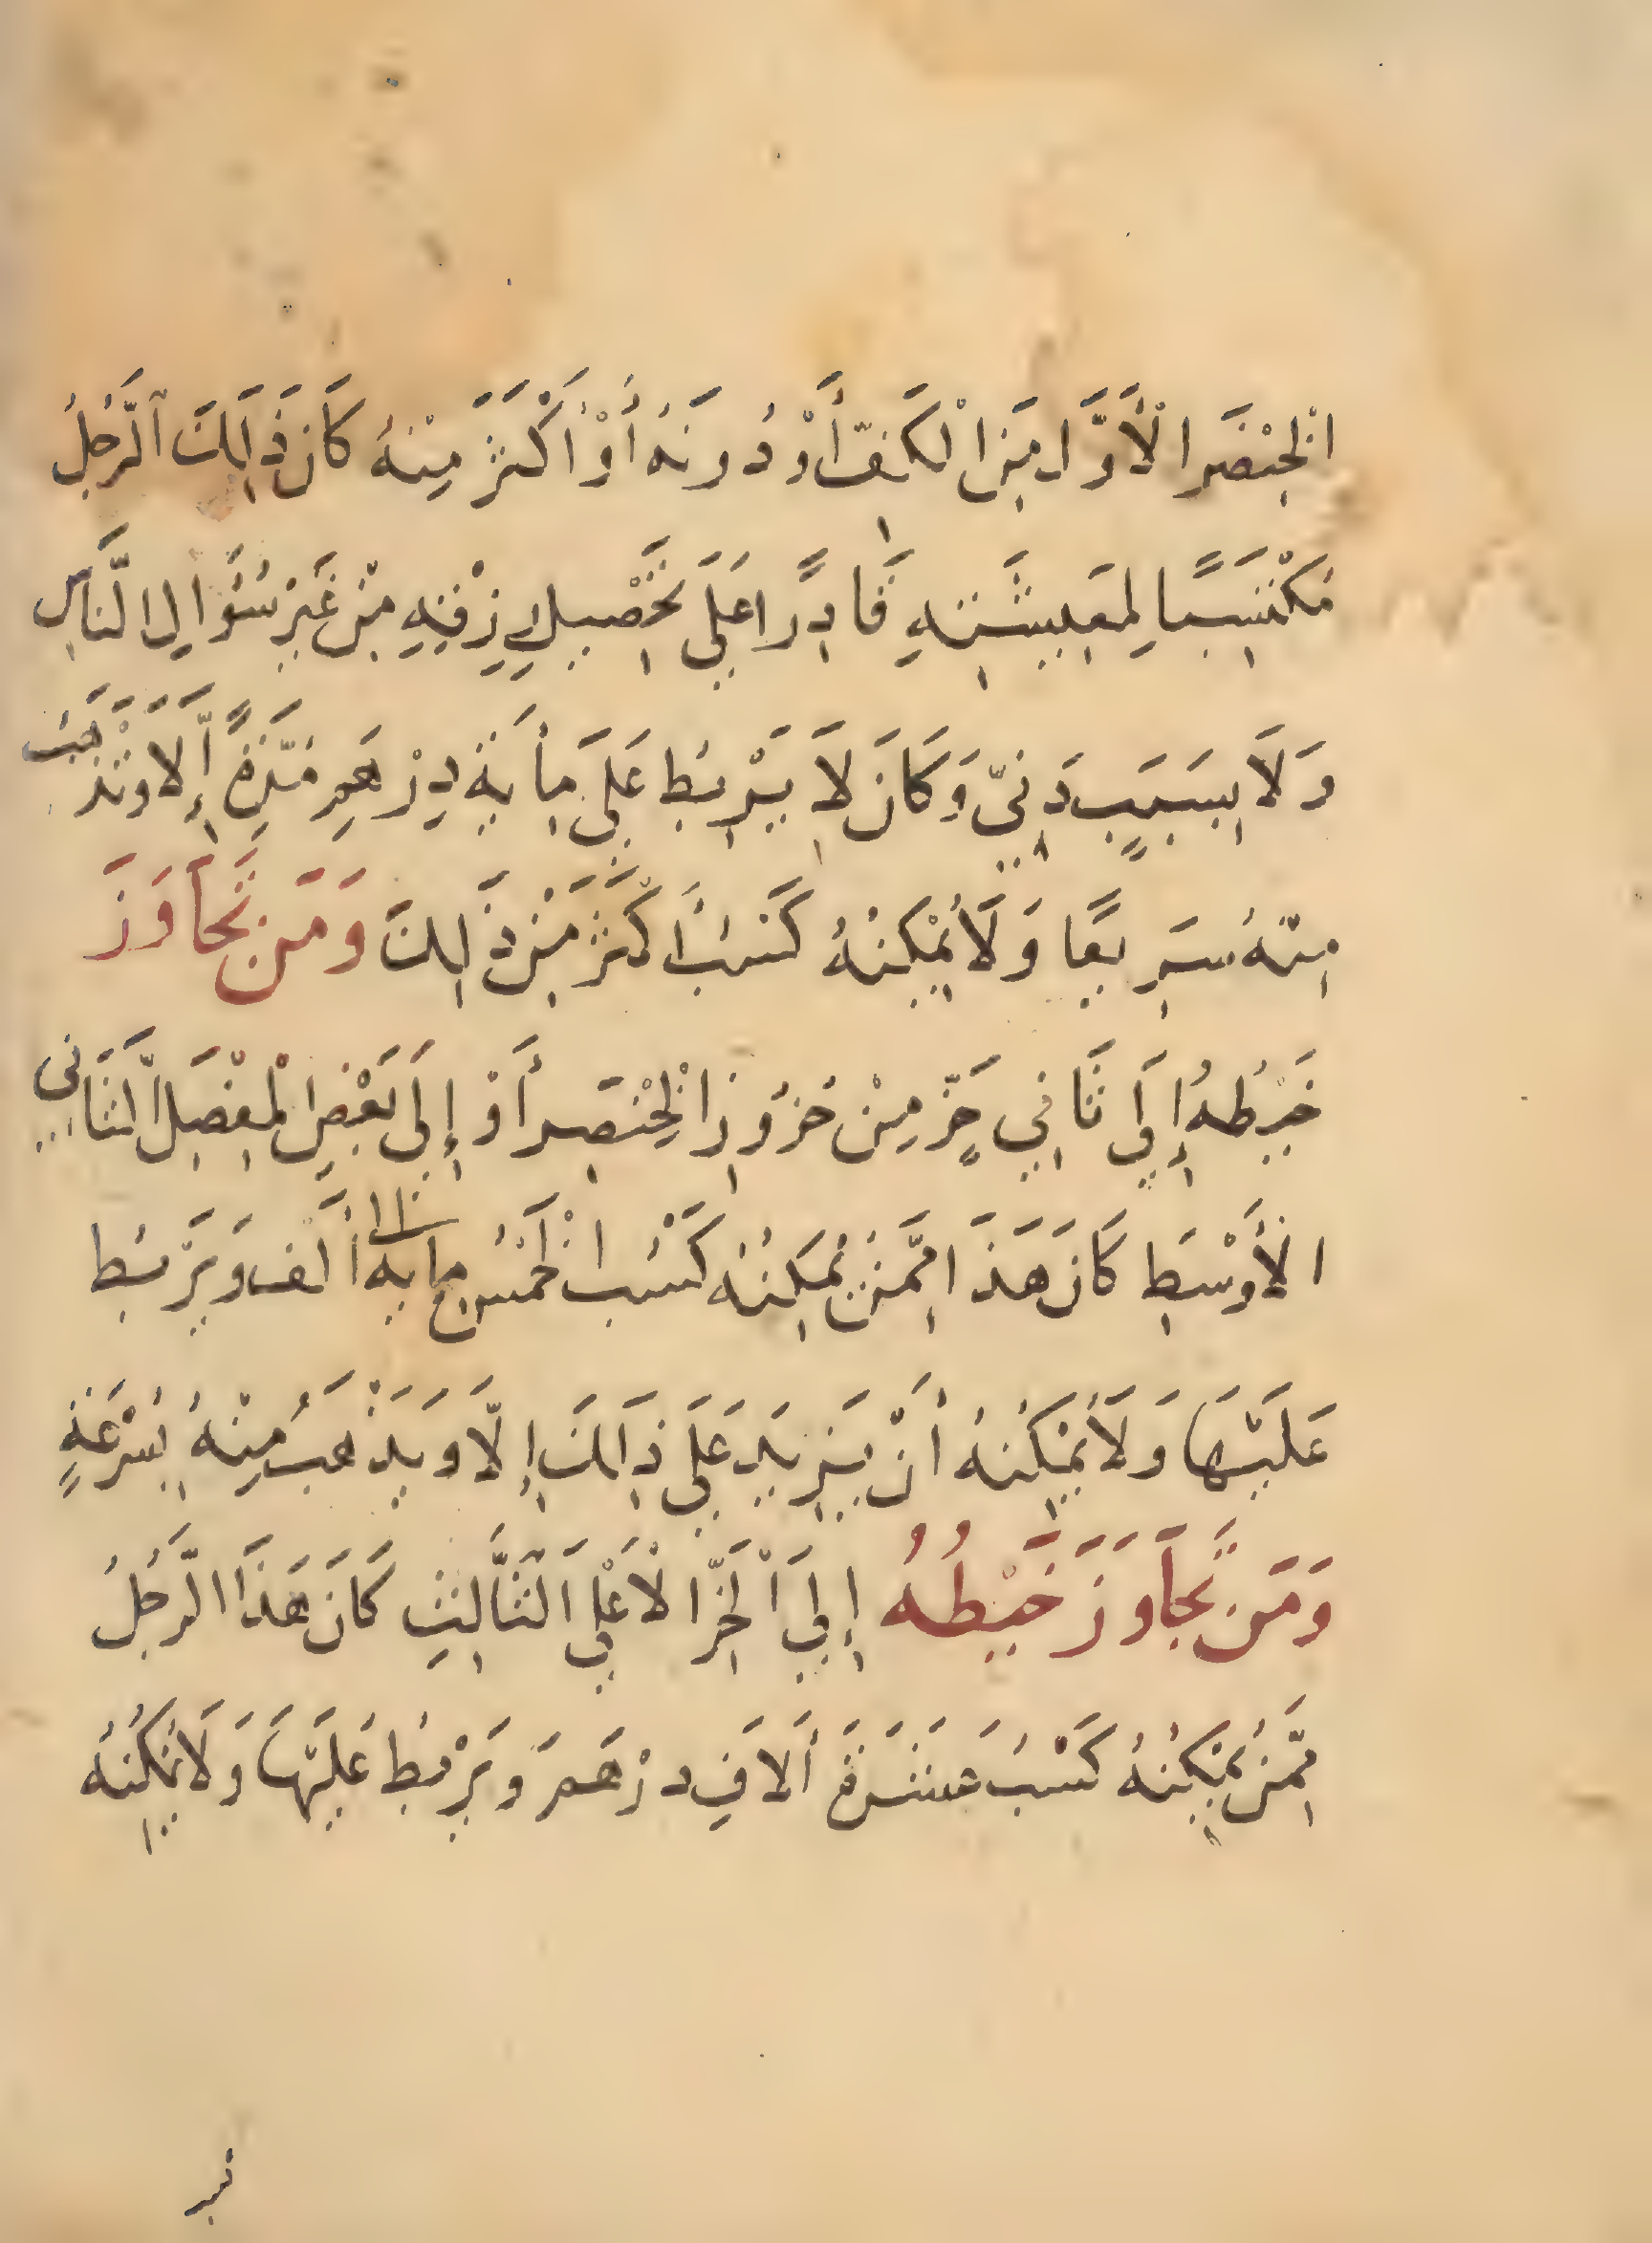 الْخِنْصَرِ الْأَوَّلِ مِنَ الْكَفِّ أَوْ دُونَهُ أَوْ أَكْثَرَ مِنْهُ كَانَ ذَلِكَ الرَّجُلُ
مُكْتَسِبًا لِمَعِيشَتِهِ قَادِرًا عَلَى تَحْصِيلِ رِزْقِهِ مِنْ غَيْرِ سُؤَالِ النَّاسِ
وَلَا بِسَبَبٍ دَنِيٍّ وَكَانَ لَا يَرْبِطُ عَلَى مِأيَةِ دِرْهَمٍ مَرَّةً إِلَّا وَتَذْهَبُ
مِنْهُ سَرِيعًا وَلَا يُمْكِنُهُ كَسْبُ أَكْثَرَ مِنْ ذَلِكَ وَمَن تَجَاوَزَ
خَيْطُهُ إِلَى ثَانِي حَزٍّ مِنْ حُزُوزِ الْخِنْصِرِ أَوْ إِلَى بَعْضِ الْمَفْصَلِ الثَّانِي
الْأَوْسَطِ كَانَ هَذَا مِمَّنْ يُمْكِنُهُ كَسْبُ الْخَمْس مايه أَلْف وَيَرْبِطُ
عَلَيْهَا وَلَا يُمْكِنُهُ أَنْ يَزِيدَ عَلَى ذَلِكَ إِلَّا وَيَذْهَبُ مِنْهُ بِسُرْعَةٍ
وَمَن تَجَاوَزَ خَيْطُهُ إِلَى الْحَزِّ الْأَعْلَى الثَّالِثِ كَانَ هَذَا الرَّجُلُ
مِمَّنْ يُمْكِنُهُ كَسْبُ عَشَرَةَ أَلَافِ دِرْهَمَ وَيَرْبِطُ عَلَيْهَا وَلَا يُمْكِنُهُ